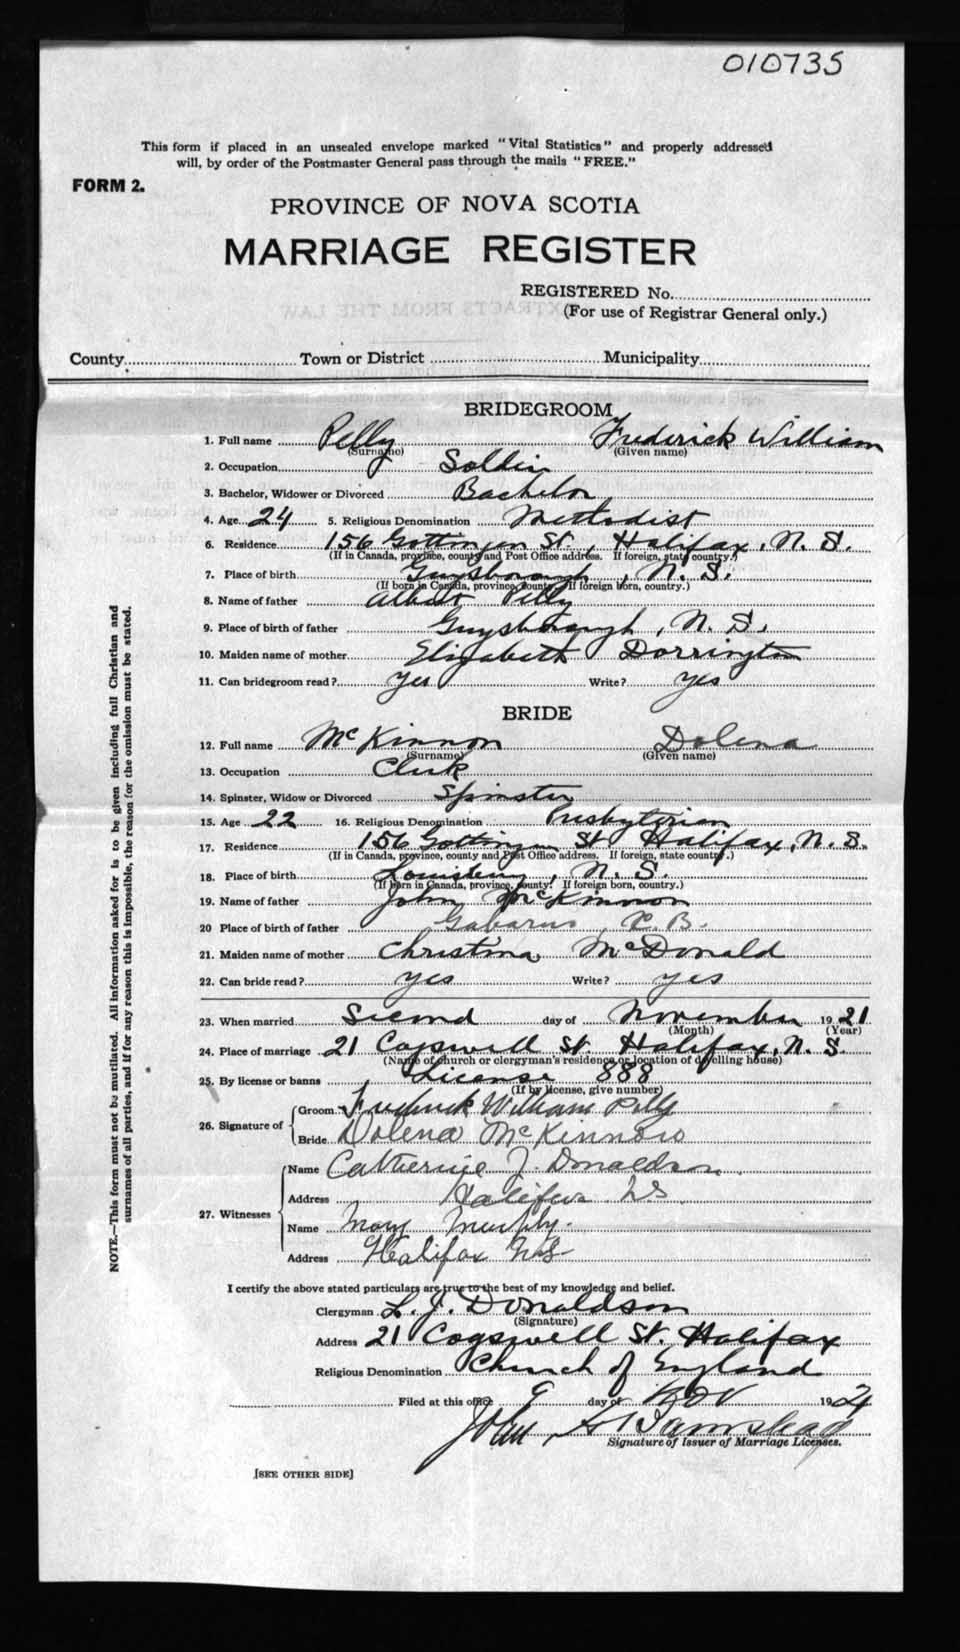 010735
This form if placed in an unsealed envelope marked "Vital Statistics" and properly addressed
will, by order of the Postmaster General pass through the mails "FREE."
FORM 2.
PROVINCE OF NOVA SCOTIA
MARRIAGE REGISTER
REGISTERED No.
(For use of Registrar General only.)
County Town or District Municipality
BRIDEGROOM
1. Full name Pelly Frederick William
(Surname) (Given name)
2. Occupation Soldier
3. Bachelor, Widower or Divorced Bachelor
4. Age 24 5. Religious Denomination Methodist
6. Residence 156 Gottingen St., Halifax, N. S.
(If in Canada, province, county and Post Office address. If foreign, state country.)
7. Place of birth Guysborough, N. S.
(If born in Canada, province, county. If foreign born, country.)
8. Name of father Albert Pelly
9. Place of birth of father Guysborough, N. S.
10. Maiden name of mother Elizabeth Dorrington
11. Can bridegroom read? yes Write? yes
BRIDE
12. Full name McKinnon Dolena
(Surname) (Given name)
13. Occupation Clerk
14. Spinster, Widow or Divorced Spinster
15. Age 22 16. Religious Denomination Presbyterian
17. Residence 156 Gottingen St Halifax, N. S.
(If in Canada, province, county and Post Office address. If foreign, state country.)
18. Place of birth Louisburg, N. S.
(If born in Canada, province, county. If foreign born, country.)
19. Name of father John McKinnon
20 Place of birth of father Gabarus, C. B.
21. Maiden name of mother Christina McDonald
22. Can bride read? yes Write? yes
23. When married Second day of November 1921
(Month) (Year)
24. Place of marriage 21 Cogswell St. Halifax, N. S.
(Name of church or clergyman's residence or location of dwelling house)
25. By license or banns License 888
(If by license, give number)
26. Signature of Groom Frederick William Pelly
Bride Dolena McKinnon
27. Witnesses Name Catherine J. Donaldson
Address Halifax NS
Name Mary Murphy.
Address Halifax NS
I certify the above stated particulars are true to the best of my knowledge and belief.
Clergyman L. J. Donaldson
(Signature)
Address 21 Cogswell St. Halifax
Religious Denomination Church of England
Filed at this office 9 day of Nov 1921
John
Signature of Issuer of Marriage Licenses.
[SEE OTHER SIDE]
NOTE.—This form must not be mutilated. All information asked for is to be given including full Christian and
surnames of all parties, and if for any reason this is impossible, the reason for the omission must be stated.